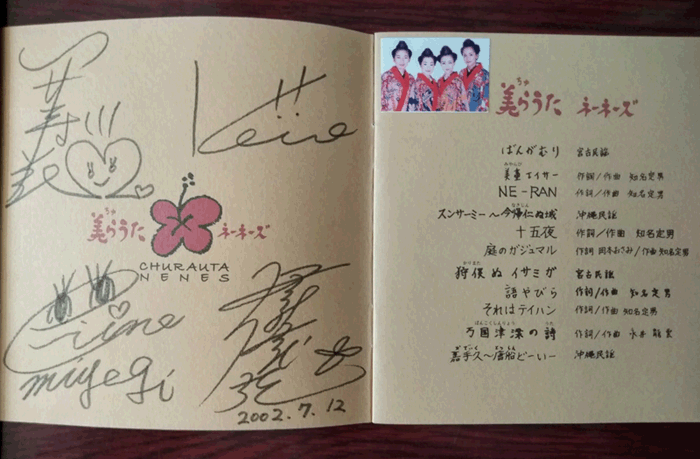 美らうた ネーネーズ
CHURAUTA
NENES
miyegi
2002.7.12
ちゅ
美らうた ネーネーズ
ばんがむり 宮古民謡
美童エイサー 作詞/作曲 知名定男
NE-RAN 作詞/作曲 知名定男
スンサーミー～今帰仁ぬ城 沖縄民謡
十五夜 作詞/作曲 知名定男
庭のガジュマル 作詞 岡本おさみ/作曲 知名定男
狩俣ぬイサミガ 宮古民謡
語やびら 作詞/作曲 知名定男
それはテイハン 作詞/作曲 知名定男
ばんこくしんりょう うた
万国津梁の詩 作詞/作曲
嘉手久～唐船どーいー 沖縄民謡